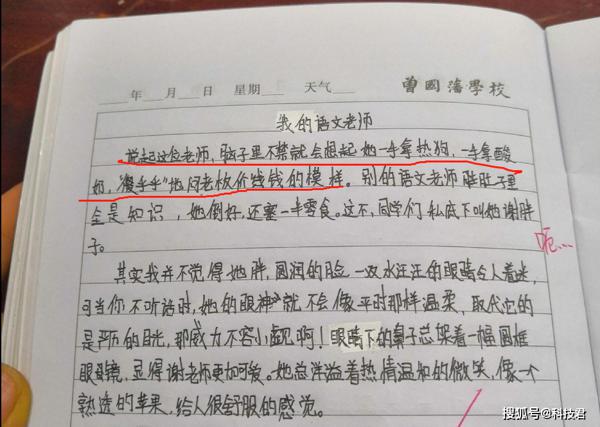 年 月 日 星期 天气 曾國藩學校
我的语文老师
说起这位老师，脑子里不禁就会想起她一手拿热狗，一手拿酸
奶，"傻乎乎"地问老板价钱的模样。别的语文老师脏肚子里
全是知识，她倒好，还塞一半零食。这不，同学们私底下叫她谢胖
子。
呃...
其实我并不觉得她胖，圆润的脸，一双水汪汪的眼睛令人着迷，
可当你不听话时，她的眼神就不会像平时那样温柔，取代它的
是严历的目光，那威力不容小觑啊！眼睛下的鼻子总架着一幅圆框
眼镜，显得谢老师更加可爱。她总洋溢着热情温和的微笑，像一个
熟透的苹果，给人很舒服的感觉。
搜狐号@科技君